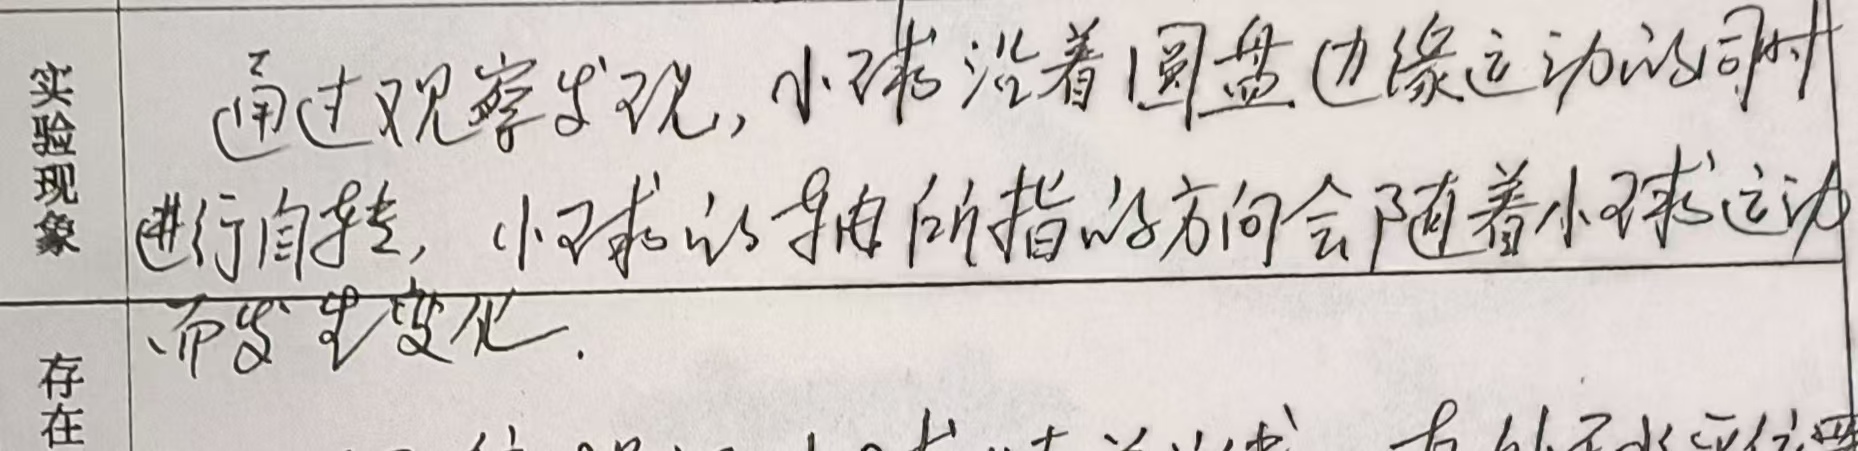 实验现象
通过观察发现，小球沿着圆盘边缘运动的同时
进行自转，小球的轴所指的方向会随着小球运动
而发生变化.
存在